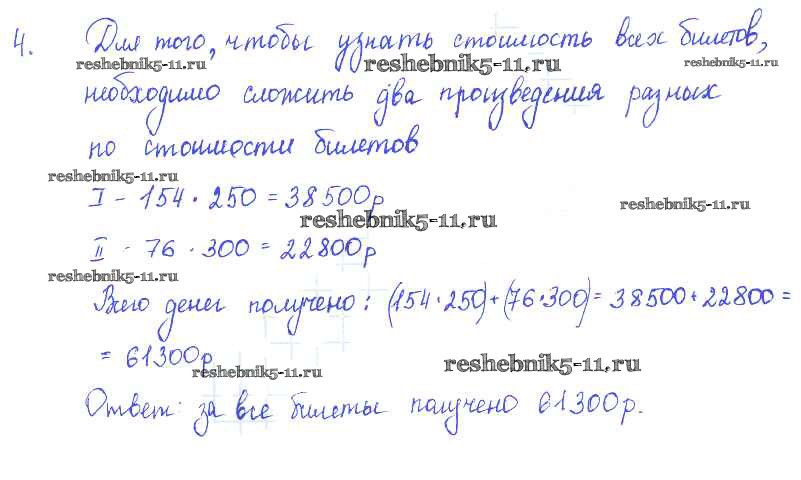 4. Для того, чтобы узнать стоимость всех билетов,
reshebnik5-11.ru reshebnik5-11.ru reshebnik5-11.ru
необходимо сложить два произведения разных
по стоимости билетов
reshebnik5-11.ru
I - 154 · 250 = 38500р
reshebnik5-11.ru
reshebnik5-11.ru
II - 76 · 300 = 22800р
reshebnik5-11.ru
Всего денег получено: (154·250)+(76·300)= 38500+22800=
= 61300р
reshebnik5-11.ru reshebnik5-11.ru
Ответ: за все билеты получено 61300р.